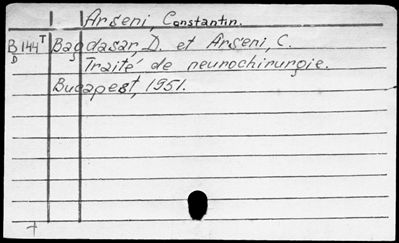 Arseni, Constantin.
B144T Bagdasar, D. et Arseni, C.
D
Traité de neurochirurgie.
Bucapest, 1951.